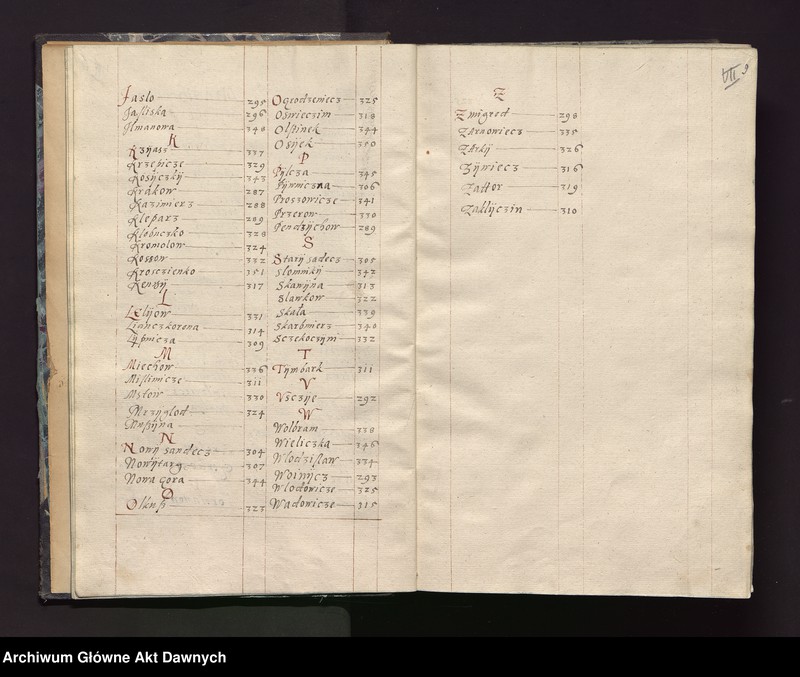 Jaslo 295
Jasliska 296
Ilmanowa 348
K
Kxijass 337
Krzepicze 329
Kosiczkij 343
Krakow 287
Kazimierz 288
Kleparz 289
Klobuczko 328
Kromolow 324
Kossow 332
Krosczienko 351
Kentij 317
L
Lelijow 331
Lianczkorona 314
Lijpnicza 309
M
Miechow 336
Mislimicze 311
Mstow 330
Mrzijglod 324
Mussijna
N
Nowij sandecz 304
Nowijtarg 307
Nowa gora 344
O
Olkuss 323
Ogrodzeniecz 325
Oswieczim 318
Olpinek 344
Osijek 350
P
Pijlcza 345
Pijwniczna 306
Proszowicze 341
Przerow 330
Pendzijchow 289
S
Starij sadecz 305
Slomnikij 342
Skawijna 313
Slawkow 322
Skala 339
Skarbmierz 340
Sczekoczijni 332
T
Tijmbark 311
V
Vsczije 292
W
Wolbram 338
Wieliczka 346
Wlodzislaw 334
Woinijcz 293
Wlodowicze 325
Wadowicze 315
Z
Zmigrod 298
Zarnowiecz 335
Zarkij 326
Zijwiecz 316
Zattor 319
Zaklijczin 310
VII 9
Archiwum Główne Akt Dawnych